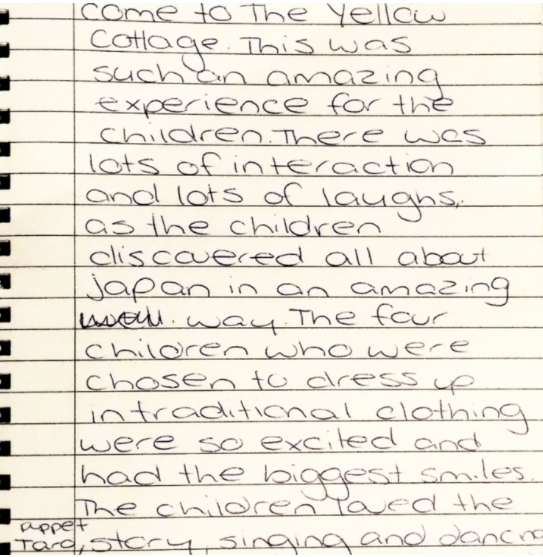 come to The Yellow
Cottage. This was
such an amazing
experience for the
children. There was
lots of interaction
and lots of laughs,
as the children
discovered all about
Japan in an amazing
way. The four
children who were
chosen to dress up
in traditional clothing
were so excited and
had the biggest smiles.
The children loved the
puppet
Taro, story, singing and dancing